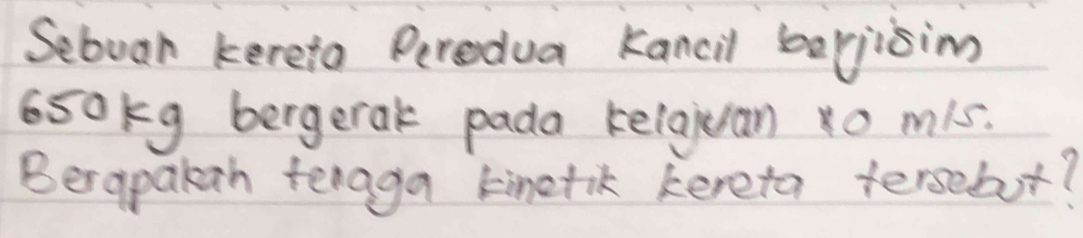 Sebuah kereta Perodua Kancil berjisim
650kg bergerak pada kelajuan m/s.
Berapakah tenaga kinetik kereta tersebut?